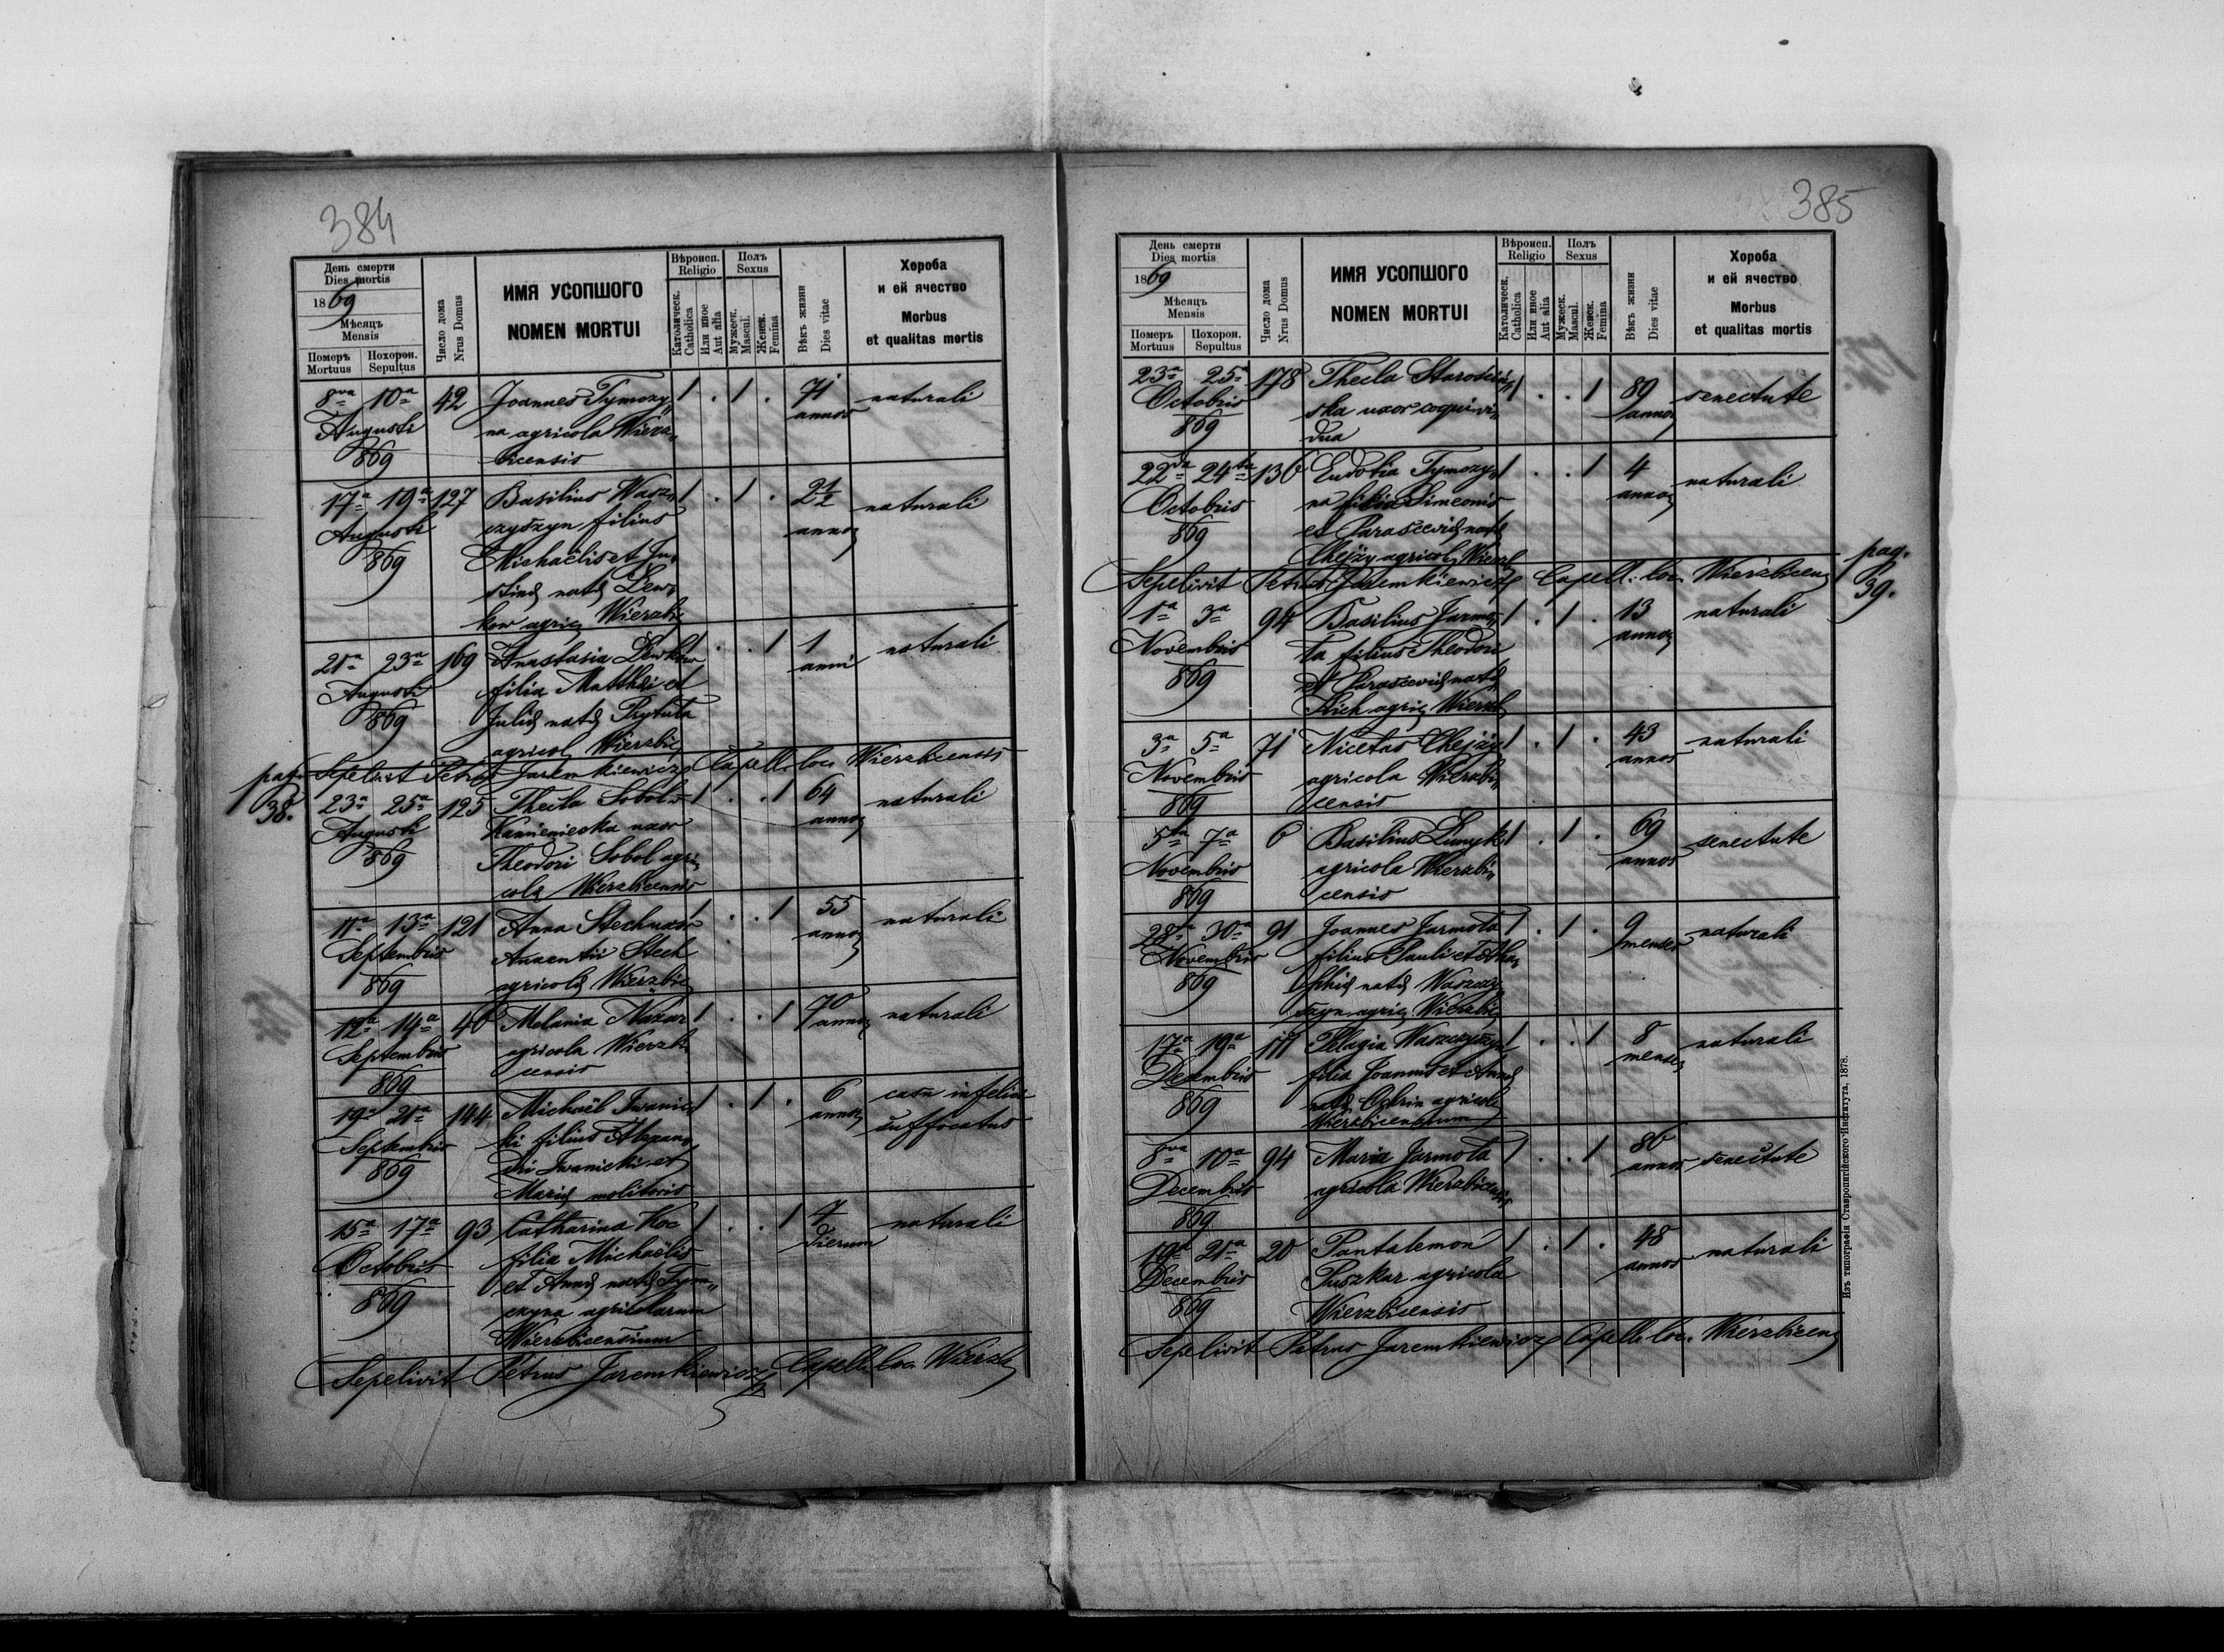 384
День смерти
Dies mortis
1869
Мѣсяцъ
Mensis
Померъ
Mortuus
Похорон.
Sepultus
Число дома
Nrus Domus
ИМЯ УСОПШОГО
NOMEN MORTUI
Вѣроисп.
Religio
Католическ.
Catholica
Или иное
Aut alia
Полъ
Sexus
Мужеск.
Mascul.
Женск.
Femina
Вѣкъ жизни
Dies vitae
Хороба
и ей ячество
Morbus
et qualitas mortis
8va 10a 42 Joannes Tymczy„ 1 . 1 . 71 naturali
Augusti na agricola Wierz„ annos
869 bicensis
17a 19a 127 Basilius Wasz„ 1 . 1 . 2 1/2 naturali
Augusti czyszyn filius annos
869 Michaëlis et Ju„
stinae natae Lew„
kow agric. Wierzbic
21a 23a 169 Anastasia Lewkow 1 . . 1 1 naturali
Augusti filia Matthaei et anni
869 Juliae natae Prytuła
agricol. Wierzbic
Sepelivit Petrus Jaremkiewicz Capell. loc. Wierzbicensis
pag. 38.
23a 25a 125 Thecla Sobol 1 . . 1 64 naturali
Augusti Kamieniecka uxor annos
869 Theodori Sobol agri„
colae Wierzbicensis
11a 13a 121 Anna Stech uxor 1 . . 1 55 naturali
Septembris Auxentii Stech annos
869 agricolae Wierzbic
12a 14a 46 Melania Nazar 1 . . 1 70 naturali
Septembris agricola Wierzbi„ annos
869 censis
19a 21a 144 Michaël Iwanic„ 1 . 1 . 6 casu infelici
Septembris ki filius Alexan„ annos suffocatus
869 dri Iwanicki et
Mariae molitoris
15a 17a 93 Catharina Koc 1 . . 1 4 naturali
Octobris filia Michaëlis dierum
869 et Annae natae Tym„
czyna agricolarum
Wierzbicensium
Sepelivit Petrus Jaremkiewicz Capell. loc. Wierzb
385
День смерти
Dies mortis
1869
Мѣсяцъ
Mensis
Померъ
Mortuus
Похорон.
Sepultus
Число дома
Nrus Domus
ИМЯ УСОПШОГО
NOMEN MORTUI
Вѣроисп.
Religio
Католическ.
Catholica
Или иное
Aut alia
Полъ
Sexus
Мужеск.
Mascul.
Женск.
Femina
Вѣкъ жизни
Dies vitae
Хороба
и ей ячество
Morbus
et qualitas mortis
23a 25a 178 Thecla Starościń„ 1 . . 1 89 senectute
Octobris ska uxor coqui vi„ annos
869 dua
22da 24ta 136 Eudotia Tymczy„ 1 . . 1 4 naturali
Octobris na filia Simeonis annos
869 et Parascevicae natae
Chejzy agricol. Wierzb
Sepelivit Petrus Jaremkiewicz Capell. loc. Wierzbicens
pag. 39.
1a 3a 94 Basilius Jarmo„ 1 . 1 . 13 naturali
Novembris ta filius Theodori annos
869 et Parasceviae natae
Stich agric. Wierzb
3a 5a 71 Nicetas Chejzy 1 . 1 . 43 naturali
Novembris agricola Wierzbi„ annos
869 censis
5ta 7a 6 Basilius Lunyk 1 . 1 . 69 senectute
Novembris agricola Wierzbi„ annos
869 censis
28a 30a 91 Joannes Jarmota 1 . 1 . 9 naturali
Novembris filius Pauli et menses
869 natae Waszczy„
szyn agric. Wierzbic
17a 19a 111 Pelagia Waszczyszyn 1 . . 1 8 naturali
Decembris filia Joannis et Annae menses
869 natae agricol
Wierzbicensium
8va 10a 94 Maria Jarmota 1 . . 1 86 senectute
Decembris agricola Wierzbicensis annos
869
19a 21a 20 Pantalemon 1 . 1 . 48 naturali
Decembris Puszkar agricola annos
869 Wierzbicensis
Sepelivit Petrus Jaremkiewicz Capell. loc. Wierzbicens
Изъ типографіи Ставропигійского Института, 1878.